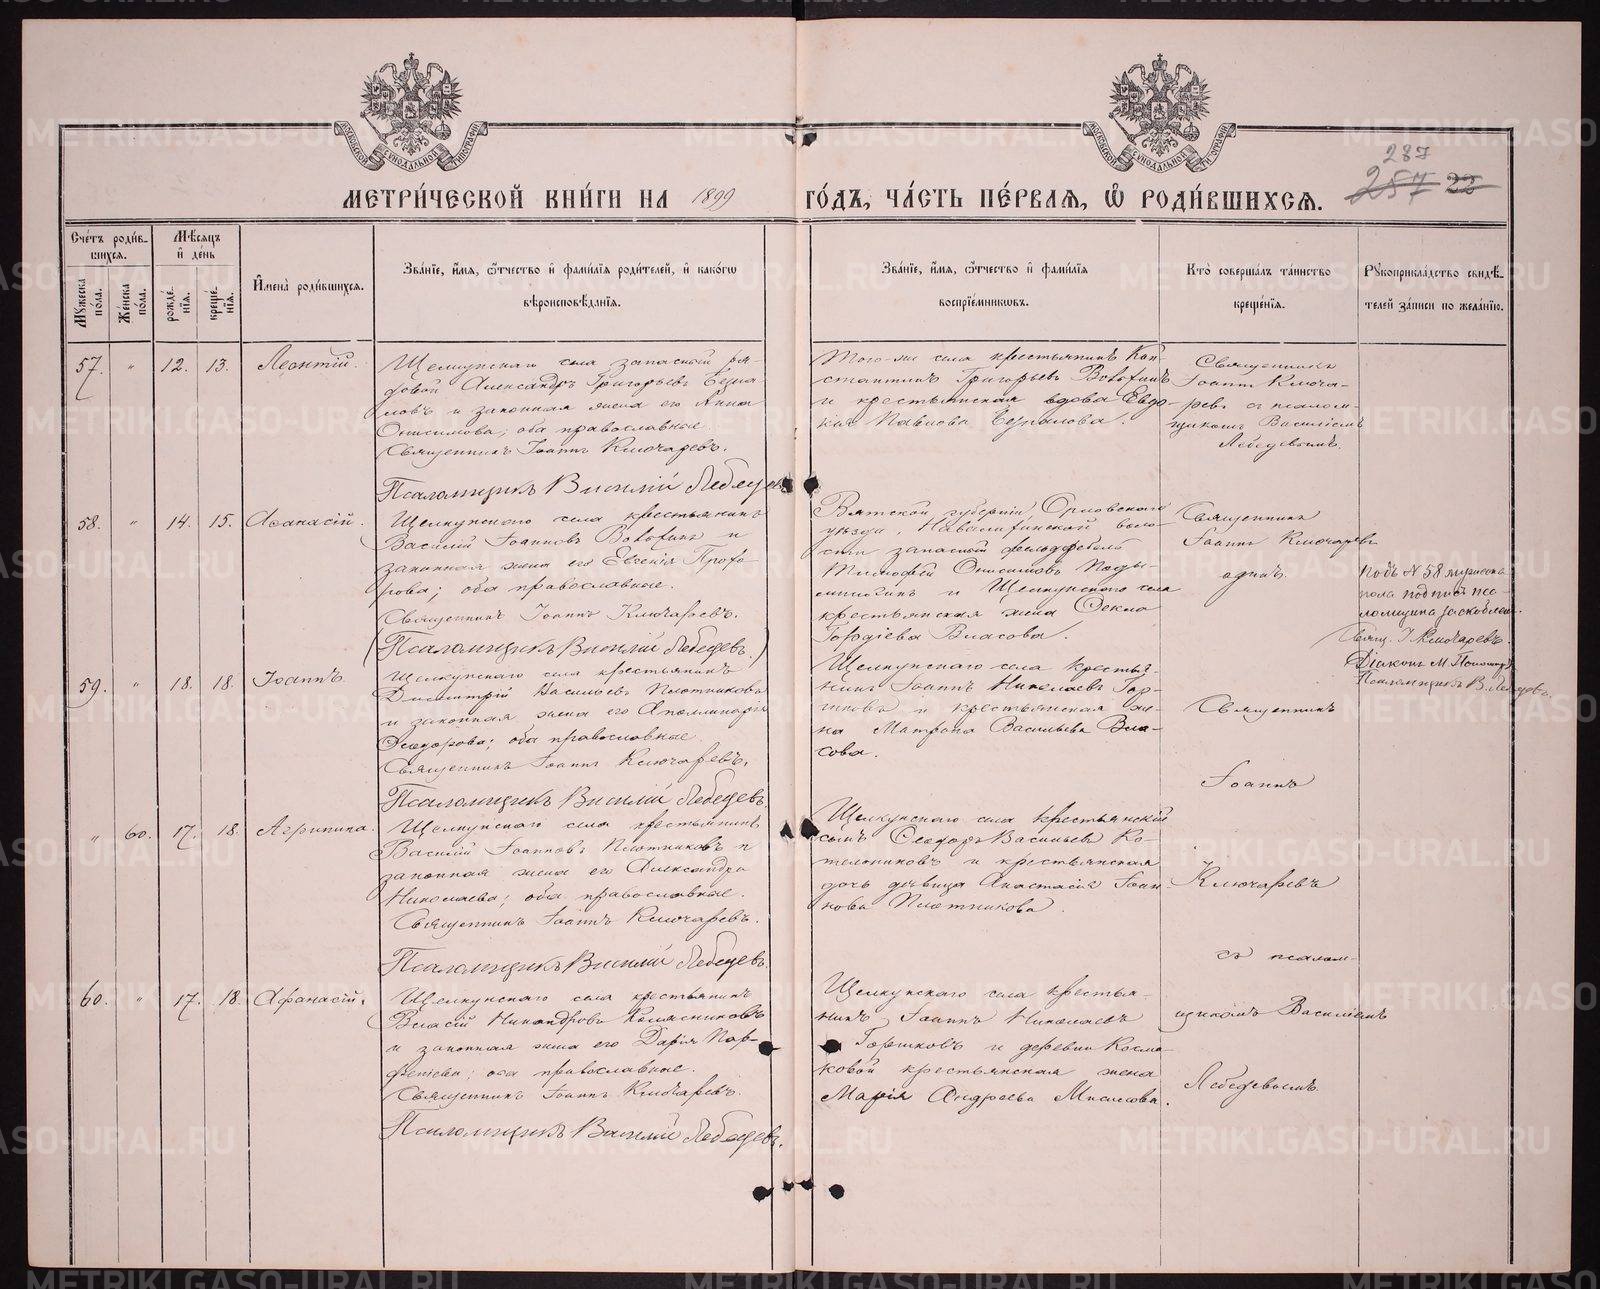 МЕТРИ́ЧЕСКОЙ КНИ́ГИ НА 1899 ГО́ДЪ, ЧА́СТЬ ПЕ́РВАѦ, Ѡ РОДИ́ВШИХСѦ.
287
257 22
Сче́тъ роди́в-
шихсѧ.
Мꙋ́жеска по́ла.
Же́нска по́ла.
Мѣ́сѧцъ и де́нь
рожде́-
нїѧ.
креще́-
нїѧ.
Имена̀ роди́вшихсѧ.
Зва́нїе, и́мѧ, ѻ҆́тчество и фами́лїѧ роди́телей, и како́гѡ
вѣроисповѣ́данїѧ.
Зва́нїе, и́мѧ, ѻ҆́тчество и фами́лїѧ
воспрїе́мникѡвъ.
Кто̀ соверша́лъ та́инство
креще́нїѧ.
Рꙋкоприкла́дство свидѣ́-
телей за́писи по жела́нїю.
57. " 12. 13. Леонтій.
Щелкунскаго села запасный ря-
довой Александръ Григорьевъ
и законная жена его Анна
Онисимова; оба православные.
Священникъ Іоаннъ Ключаревъ.
Псаломщикъ Василій Лебедевъ
Того-же села крестьянинъ Кон-
стантинъ Григорьевъ
и крестьянская вдова Евдо-
кія Павлова
Священникъ
Іоаннъ Ключа-
ревъ съ псалом-
щикомъ Василіемъ
Лебедевымъ.
58. " 14. 15. Аѳанасій.
Щелкунскаго села крестьянинъ
Василій Іоанновъ и
законная жена его Евгенія Прохо-
рова; оба православные.
Священникъ Іоаннъ Ключаревъ.
(Псаломщикъ Василій Лебедевъ.)
Вятской губерніи, Орловскаго
уѣзда, воло-
сти запасный фельдфебель
Тимофей Онисимовъ
и Щелкунскаго села
крестьянская жена Ѳекла
Гордіева Власова.
Священникъ
Іоаннъ Ключаревъ
одинъ.
Подъ № 58 мужеска
пола подпись пса-
ломщика заскоблен.
Свящ. І. Ключаревъ.
Діаконъ М.
Псаломщикъ В. Лебедевъ.
59. " 18. 18. Іоаннъ.
Щелкунскаго села крестьянинъ
Димитрій Васильевъ Плотниковъ
и законная жена его Аполлинарія
Ѳеодорова; оба православные.
Священникъ Іоаннъ Ключаревъ.
Псаломщикъ Василій Лебедевъ
Щелкунскаго села крестья-
нинъ Іоаннъ Николаевъ Гор-
шковъ и крестьянская же-
на Матрона Васильева Вла-
сова.
Священникъ
Іоаннъ
" 60. 17. 18. Агрипина.
Щелкунскаго села крестьянинъ
Василій Іоанновъ Плотниковъ и
законная жена его Александра
Николаева; оба православные.
Священникъ Іоаннъ Ключаревъ.
Псаломщикъ Василій Лебедевъ
Щелкунскаго села крестьянскій
сынъ Ѳеодоръ Васильевъ Ко-
тельниковъ и крестьянская
дочь дѣвица Анастасія Іоан-
нова Плотникова.
Ключаревъ
съ псалом-
60. " 17. 18. Афанасій.
Щелкунскаго села крестьянинъ
Власій Никандровъ Колясниковъ
и законная жена его Дарія Пар-
феніева; оба православные.
Священникъ Іоаннъ Ключаревъ.
Псаломщикъ Василій Лебедевъ.
Щелкунскаго села крестья-
нинъ Іоаннъ Николаевъ
Горшковъ и деревни Косма-
ковой крестьянская жена
Марія Андреева
щикомъ Василіемъ
Лебедевымъ.
METRIKI.GASO-URAL.RU